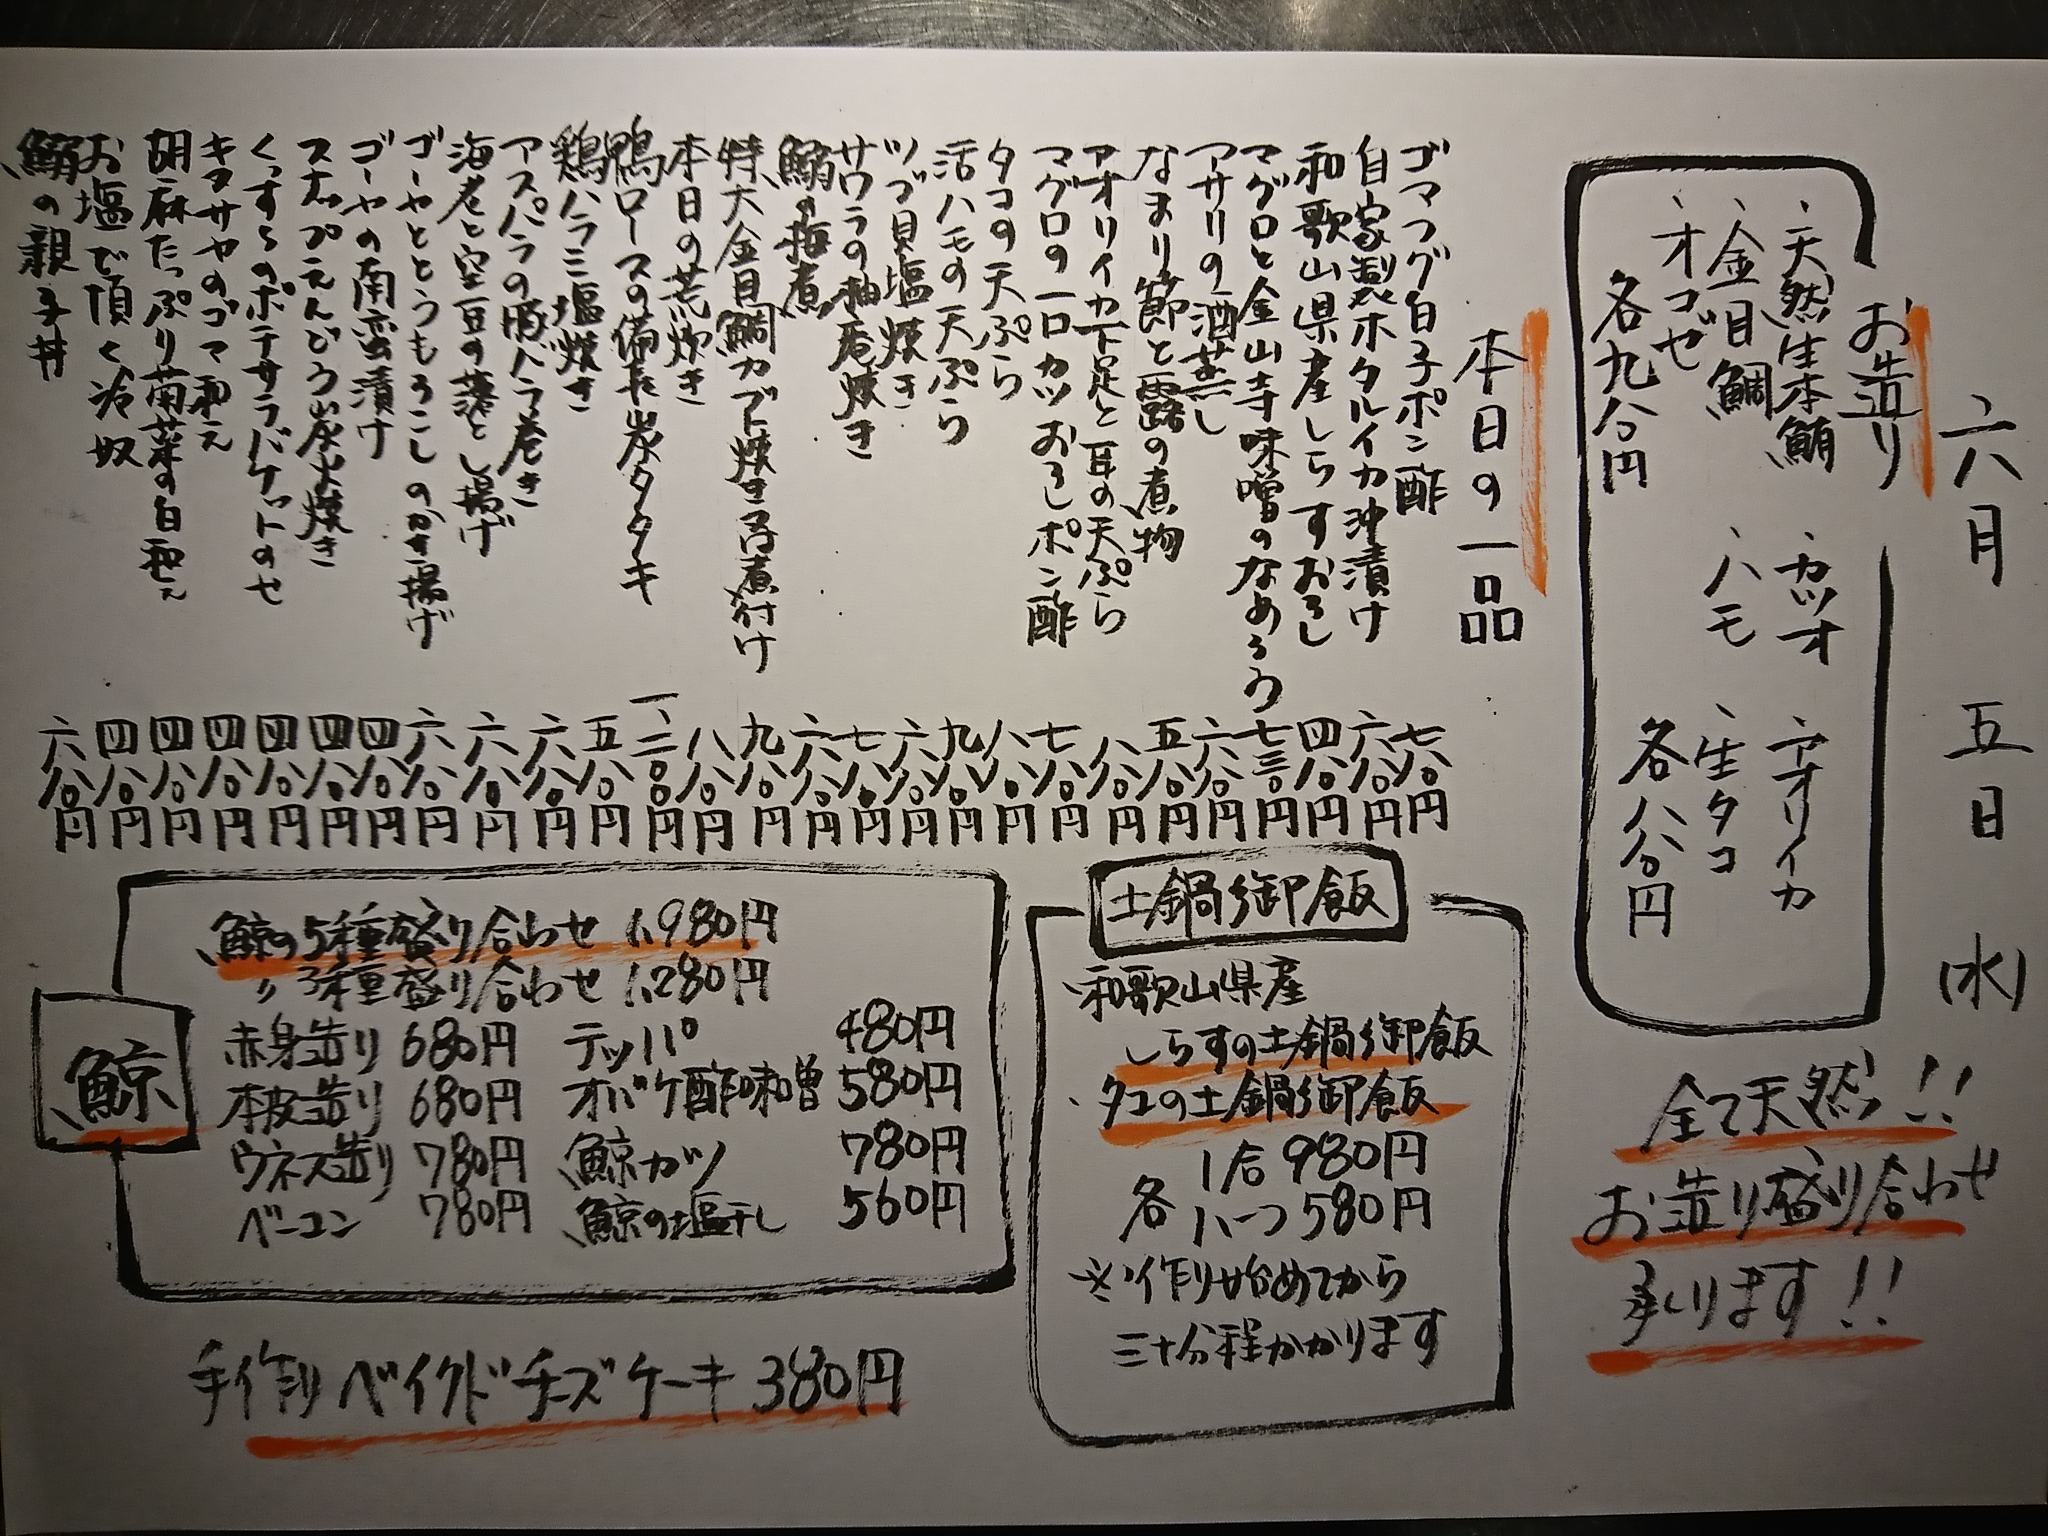 六月 五日 (水)
お造り
、天然生本鮪 、カツオ 、アオリイカ
、金目鯛 、ハモ 、生タコ
、オコゼ
各九八〇円 各八八〇円
全て天然!!
お造り盛り合わせ
承ります!!
本日の一品
ゴマフグ白子ポン酢 七八〇円
自家製ホタルイカ沖漬け 六八〇円
和歌山県産しらすおろし 四八〇円
マグロと金山寺味噌のなめろう 七三〇円
アサリの酒蒸し 六八〇円
なまり節と露の煮物 五八〇円
アオリイカ下足と耳の天ぷら 八八〇円
マグロの一口カツおろしポン酢 七八〇円
タコの天ぷら 八八〇円
活ハモの天ぷら 九八〇円
ツブ貝塩焼き 六八〇円
サワラの柚庵焼き 七八〇円
鰯の梅煮 六八〇円
特大金目鯛カブト焼きor煮付け 九八〇円
本日の荒炊き 八八〇円
鴨ロースの備長炭タタキ 一、二〇〇円
鶏ハラミ塩焼き 五八〇円
アスパラの豚バラ巻き 六八〇円
海老と空豆の落とし揚げ 六八〇円
ゴーヤととうもろこしのかき揚げ 六八〇円
ゴーヤの南蛮漬け 四八〇円
スナップえんどう炭火焼き 四八〇円
くんすうのポテサラバケットのせ 四八〇円
キヌサヤのゴマ和え 四八〇円
胡麻たっぷり菊菜の白和え 四八〇円
お塩で頂く冷奴 四八〇円
鰯の親子丼 六八〇円
土鍋御飯
、和歌山県産
しらすの土鍋御飯
、タコの土鍋御飯
各 1合 980円
ハーフ 580円
※作り始めてから
三十分程かかります
鯨
鯨の5種盛り合わせ 1,980円
〃 3種盛り合わせ 1,280円
赤身造り 680円 テッパ 480円
本皮造り 680円 オバケ酢味噌 580円
ウネス造り 780円 鯨カツ 780円
ベーコン 780円 鯨の塩干し 560円
手作りベイクドチーズケーキ 380円